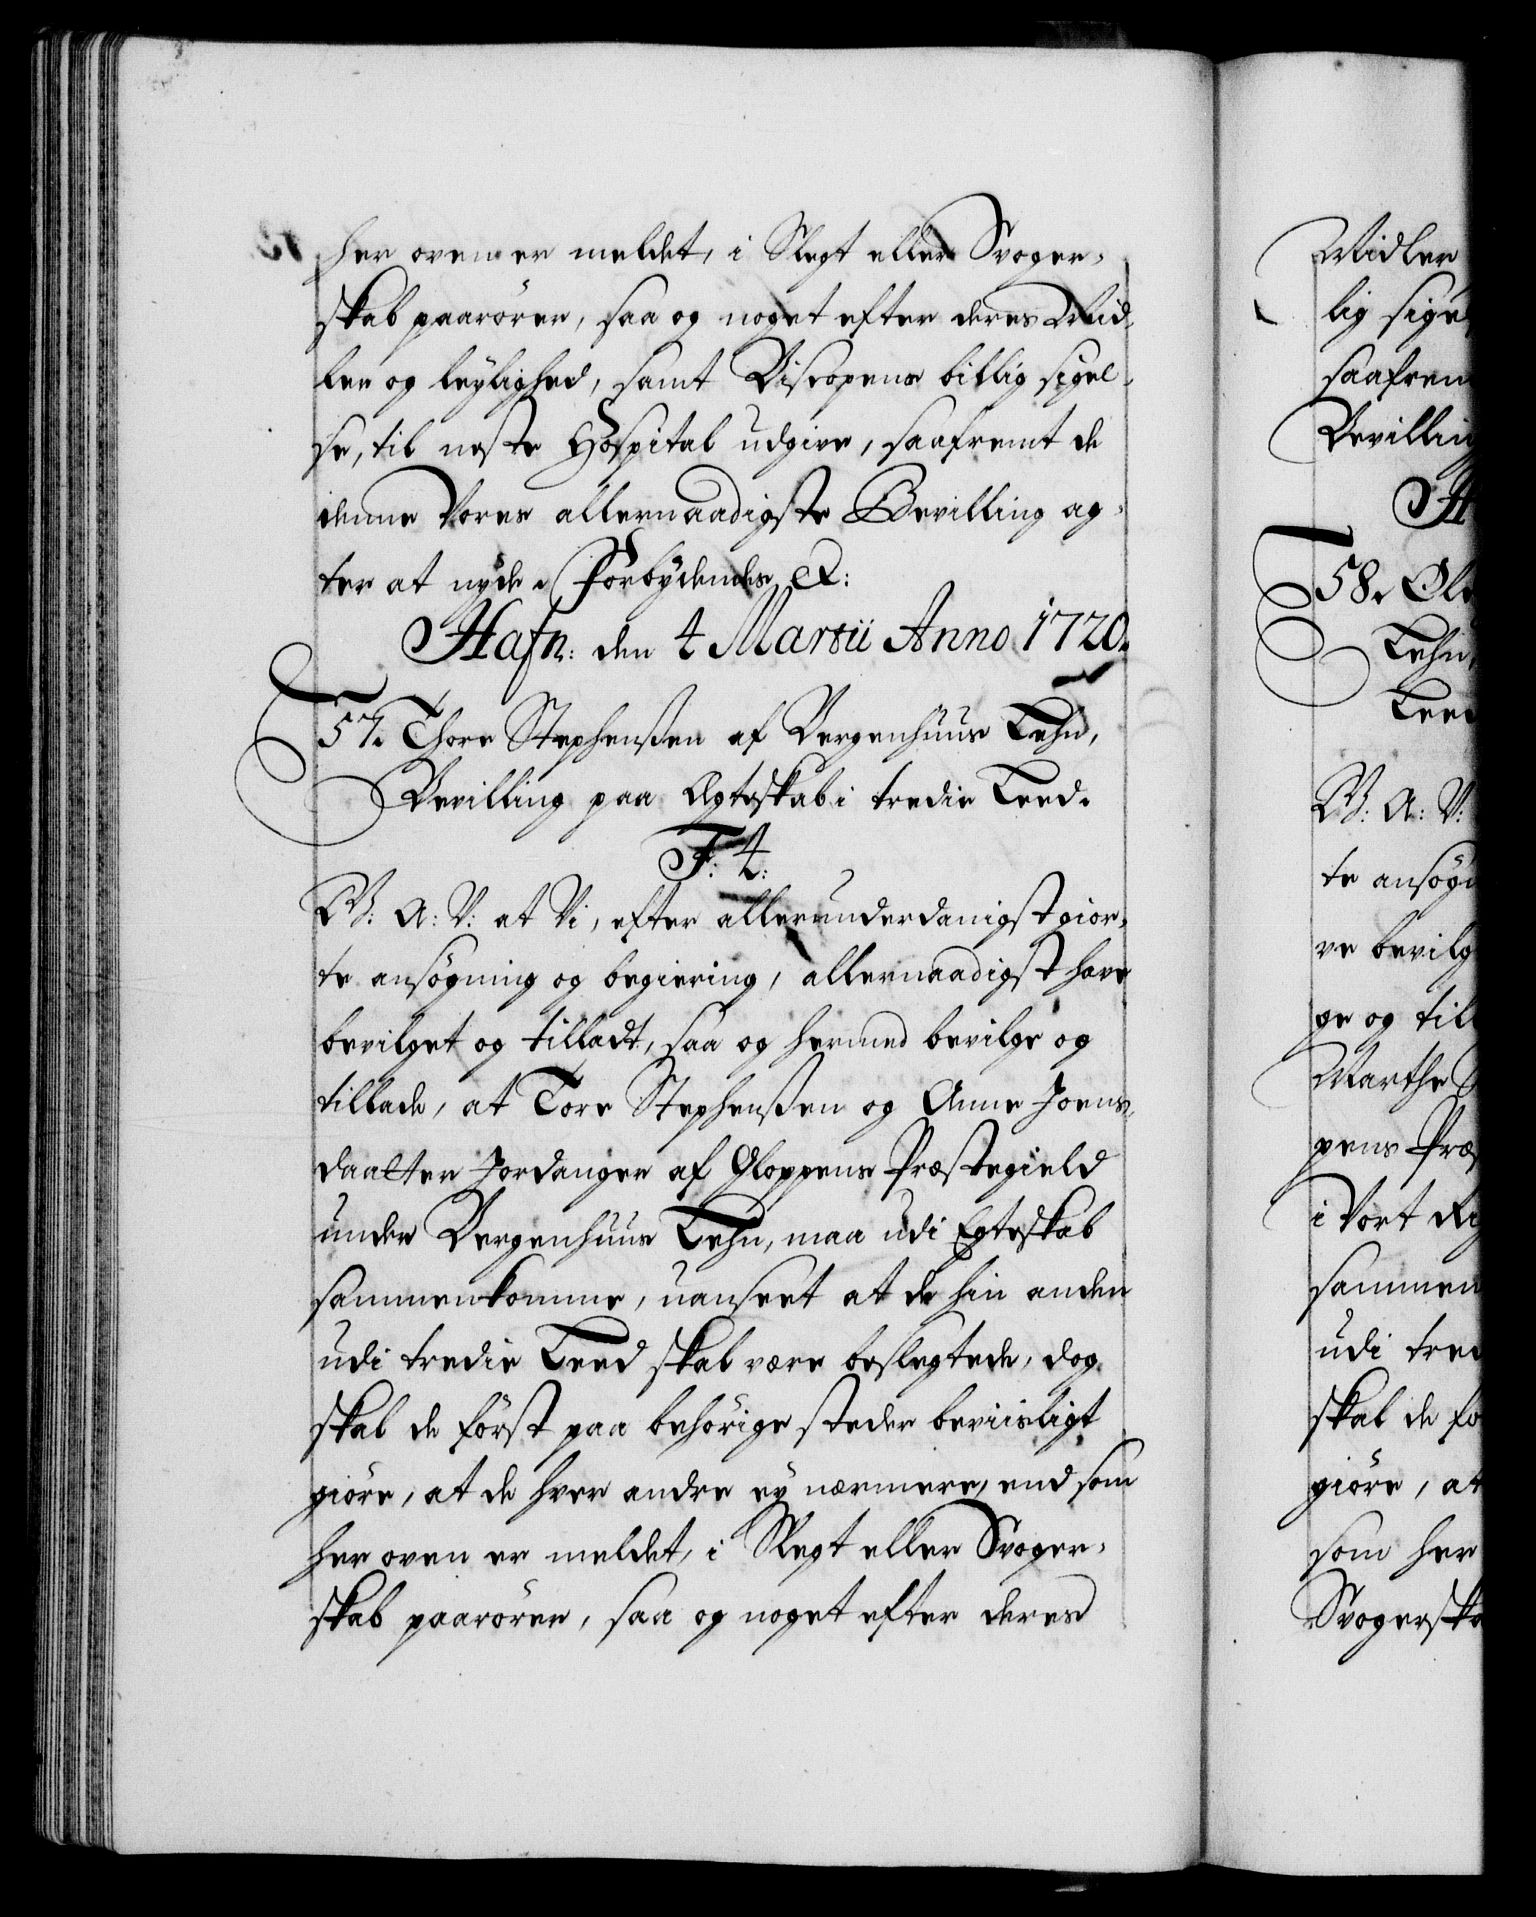 her oven er meldet, i Slegt eller Svoger-
skab paarörer, saa og noget efter deres Mid-
ler og leylighed, samt Biscopens billig sigel-
se, til neste Hospital udgive, saafremt de
denne Vores allernaadigste Bevilling ag-
ter at nyde. Forbydendes &:
Hafn: den 4 Martii Anno 1720.
57. Thore Stephenßen af Bergenhuus Lehn,
Bevilling paa Ægteskab i tredie Leed.
F: 4:
G: A: V: at Vi, efter allerunderdanigst gior-
te ansögning og begiering, allernaadigst have
bevilget og tilladt, saa og hermed bevilge og
tillade, at Tore Stephenßen og Anne Joens-
daatter Jordanger af Gloppens Præstegield
under Bergenhuus Lehn, maa udi Egteskab
sammenkomme, uanseet at de hin anden
udi tredie Leed skal være beslegtede, dog
skal de först paa behörige steder beviisligt
giöre, at de hver andre ey nærmere, end som
her oven er meldet, i Slegt eller Svoger-
skab paarörer, saa og noget efter deres
Midler
lig sigel
saafrem
Bevillin
H
58. Ole
Lehn,
Leed
G: A: V:
te ansögn
ve bevilg
ge og till
Marthe
pens Præs
i Vort Ri
sammen
udi tred
skal de fö
giöre, at
som her
Svogerska